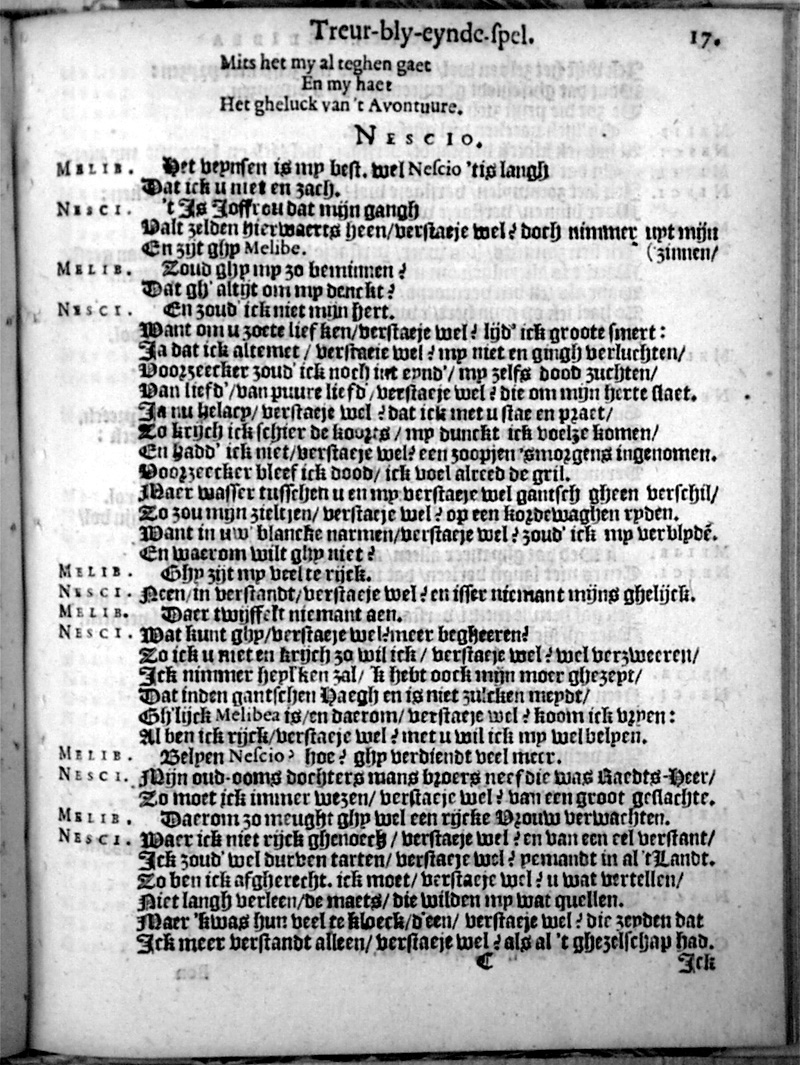 Treur-bly-eynde-spel. 17.
Mits het my al teghen gaet
En my haet
Het gheluck van 't Avontuure.
NESCIO.
MELIB. Het veynsen is mp best. wel Nescio 'tis langh
Dat ick u niet en zach.
NESCI. 't Is Joffrou dat mijn gangh
Valt zelden hierwaerts heen/verstaeje wel? doch nimmer uyt mijn
En zijt ghy Melibe. (zinnen/
MELIB. Zoud ghy my zo beminnen?
Dat gh' altijt om my denckt?
NESCI. En zoud' ick niet mijn hert.
Want om u zoete lief ken/verstaeje wel? lijd' ick groote smert:
Ja dat ick altemet / verstaeje wel? my niet en gingh verluchten/
Voorzeecker zoud' ick noch int eynd'/ my zelfs dood zuchten/
Van liefd'/van puure liefd'/verstaeje wel? die om mijn herte slaet.
Ja nu helacy/ verstaeje wel? dat ick met u stae en praet/
Zo krijch ick schier de koorts / my dunckt ick voelze komen/
En hadd' ick niet/verstaeje wel? een zoopjen 'smorgens ingenomen.
Voorzeecker bleef ick dood/ ick voel alreed de gril.
Maer wasser tusschen u en my verstaeje wel gantsch gheen verschil/
Zo zou mijn zieltjen/ verstaeje wel? op een kordewaghen ryden.
Want in uw' blancke narmen/verstaeje wel? zoud' ick my verblydē.
En waerom wilt ghy niet?
MELIB. Ghy zijt my veel te rijck.
NESCI. Neen/in verstandt/verstaeje wel? en isser niemant mijns ghelijck.
MELIB. Daer twijffelt niemant aen.
NESCI. Wat kunt ghy/verstaeje wel? meer begheeren?
Zo ick u niet en krijch zo wil ick/ verstaeje wel? wel verzweeren/
Ick nimmer heyl'ken zal/ 'k hebt oock mijn moer ghezeyt/
Dat inden gantschen Haegh en is niet zulcken meydt/
Gh'lijck Melibea is/en daerom/ verstaeje wel? koom ick vryen:
Al ben ick rijck/verstaeje wel? met u wil ick my wel belyen.
MELIB. Belyen Nescio? hoe? ghy verdiendt veel meer.
NESCI. Mijn oud-ooms dochters mans broers neef die was Raedts-Heer/
Zo moet ick immer wezen/ verstaeje wel? van een groot geslachte.
MELIB. Daerom zo meught ghy wel een rijcke Vrouw verwachten.
NESCI. Waer ick niet rijck ghenoech / verstaeje wel? en van een eel verstant/
Ick zoud' wel durven tarten/ verstaeje wel? yemandt in al 't Landt.
Zo ben ick afgherecht. ick moet/ verstaeje wel? u wat vertellen/
Niet langh verleen/de maets/ die wilden my wat quellen.
Maer 'kwas hun veel te kloeck/d'een/ verstaeje wel? die zeyden dat
Ick meer verstandt alleen/ verstaeje wel? als al 't ghezelschap had.
C Ick